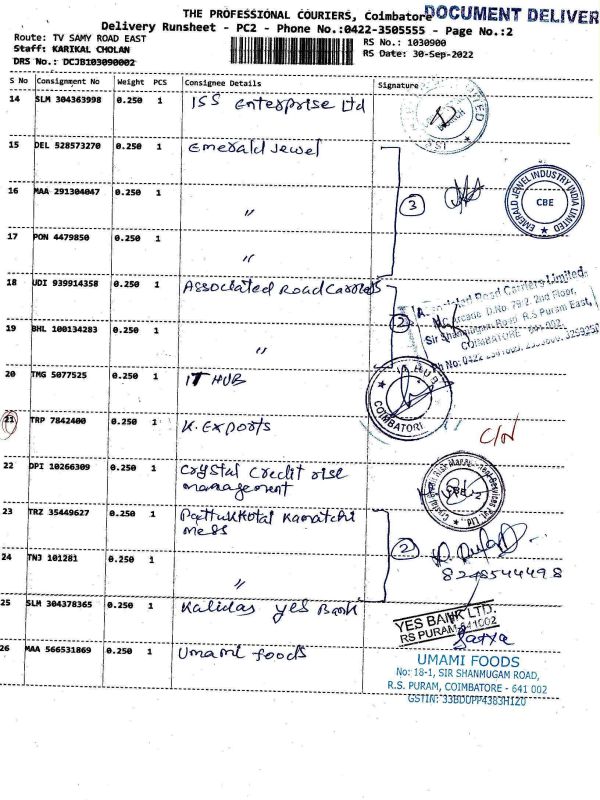 THE PROFESSIONAL COURIERS, Coimbatore DOCUMENT DELIVER
Delivery Runsheet - PC2 - Phone No.:0422-3505555 - Page No.:2
Route: TV SAMY ROAD EAST
RS No.: 1030900
Staff: KARIKAL CHOLAN
RS Date: 30-Sep-2022
DRS No.: DCJB103090002
S No Consignment No Weight PCS Consignee Details Signature
14 SLM 304363998 0.250 1 ISS Enterprise Ltd
15 DEL 528573270 0.250 1 Emerald Jewel
16 MAA 291304047 0.250 1 "
3
EMERALD JEWEL INDUSTRY INDIA LIMITED
CBE
17 PON 4479850 0.250 1 "
18 UDI 939914358 0.250 1 Associated Road Carriers
Road Carriers Limited
Arcade, D.No. 79/2, 2nd Floor,
Sir Shanmugam Road, R.S Puram East,
COIMBATORE 641 002
Ph No: 0422
2
19 BHL 100134283 0.250 1 "
20 TMG 5077525 0.250 1 IT HUB
COIMBATORE
21 TRP 7842400 0.250 1 K. Exports
C/N
22 DPI 10266309 0.250 1 Crystal Credit rise
management
23 TRZ 35449627 0.250 1 Pattukkotai Kamatchi
mess
2
24 TNJ 101281 0.250 1 "
8248544498
25 SLM 304378365 0.250 1 Kalidas yes Bank
YES BANK LTD.
RS PURAM-641002
Satya
26 MAA 566531869 0.250 1 Umami foods
UMAMI FOODS
No: 18-1, SIR SHANMUGAM ROAD,
R.S. PURAM, COIMBATORE - 641 002
GSTIN: 33BDUPP4383H1Z0